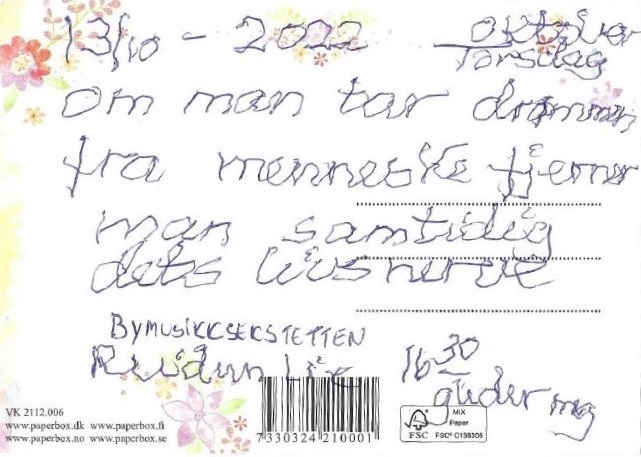 13/10 - 2022 oktober
Torsdag
Om man tar drømmen
fra menneske fjerner
man samtidig
dets livsnerve
BYMUSIKKSEKSTETTEN
Reidun Lie 16 30
gleder meg
VK 2112.006
www.paperbox.dk www.paperbox.fi
www.paperbox.no www.paperbox.se
7 330324 210001
FSC
MIX
Paper
FSC® C136305